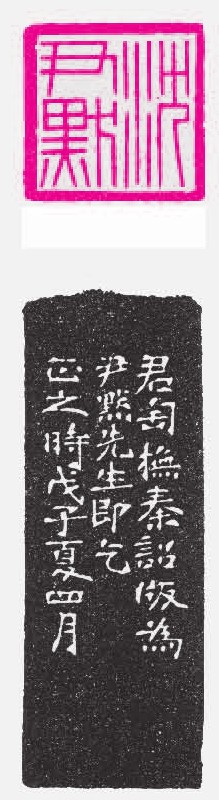 沈
尹默
君匋橅秦詔版為
尹默先生即乞
正之時戊子夏四月